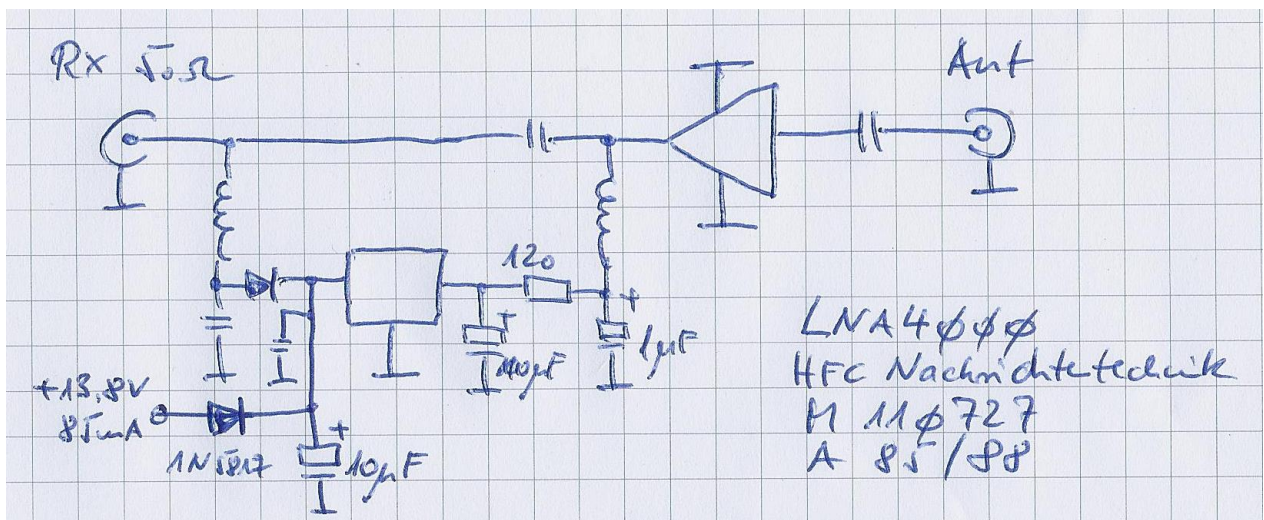 Rx 50Ω
Ant
120
+
+
10µF
1µF
+13,8V
85mA
1N5817
+
10µF
LNA4000
HFC Nachrichtentechnik
M 110727
A 85/88